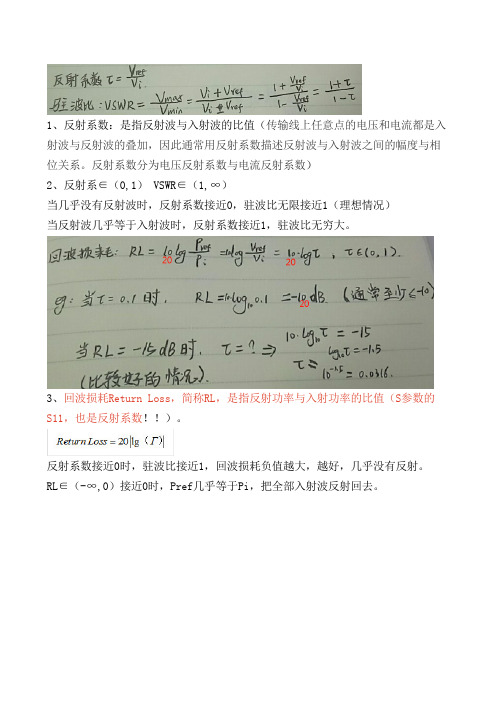 反射系数 τ = Vref/Vi
驻波比：VSWR = Vmax/Vmin = (Vi + Vref)/(Vi ± Vref) = (1 + Vref/Vi)/(1 - Vref/Vi) = (1+τ)/(1-τ)
1、反射系数：是指反射波与入射波的比值（传输线上任意点的电压和电流都是入
射波与反射波的叠加，因此通常用反射系数描述反射波与入射波之间的幅度与相
位关系。反射系数分为电压反射系数与电流反射系数）
2、反射系∈（0,1） VSWR∈（1,∞）
当几乎没有反射波时，反射系数接近0，驻波比无限接近1（理想情况）
当反射波几乎等于入射波时，反射系数接近1，驻波比无穷大。
回波损耗：RL = 10 log Pref/Pi = 10 log Vref/Vi = 10·log τ ，τ∈(0,1).
20 20
eg：当τ=0.1时， RL = 10 log₁₀ 0.1 = -10 dB （通常至少≤-10）
20
当RL=-15dB时，τ=？⇒ 10·log₁₀τ = -15
（比较好的情况）. log₁₀τ = -1.5
τ = 10^-1.5 = 0.0316.
3、回波损耗Return Loss，简称RL，是指反射功率与入射功率的比值（S参数的
S11，也是反射系数！！）。
Return Loss = 20|lg（Γ）|
反射系数接近0时，驻波比接近1，回波损耗负值越大，越好，几乎没有反射。
RL∈（-∞,0）接近0时，Pref几乎等于Pi，把全部入射波反射回去。